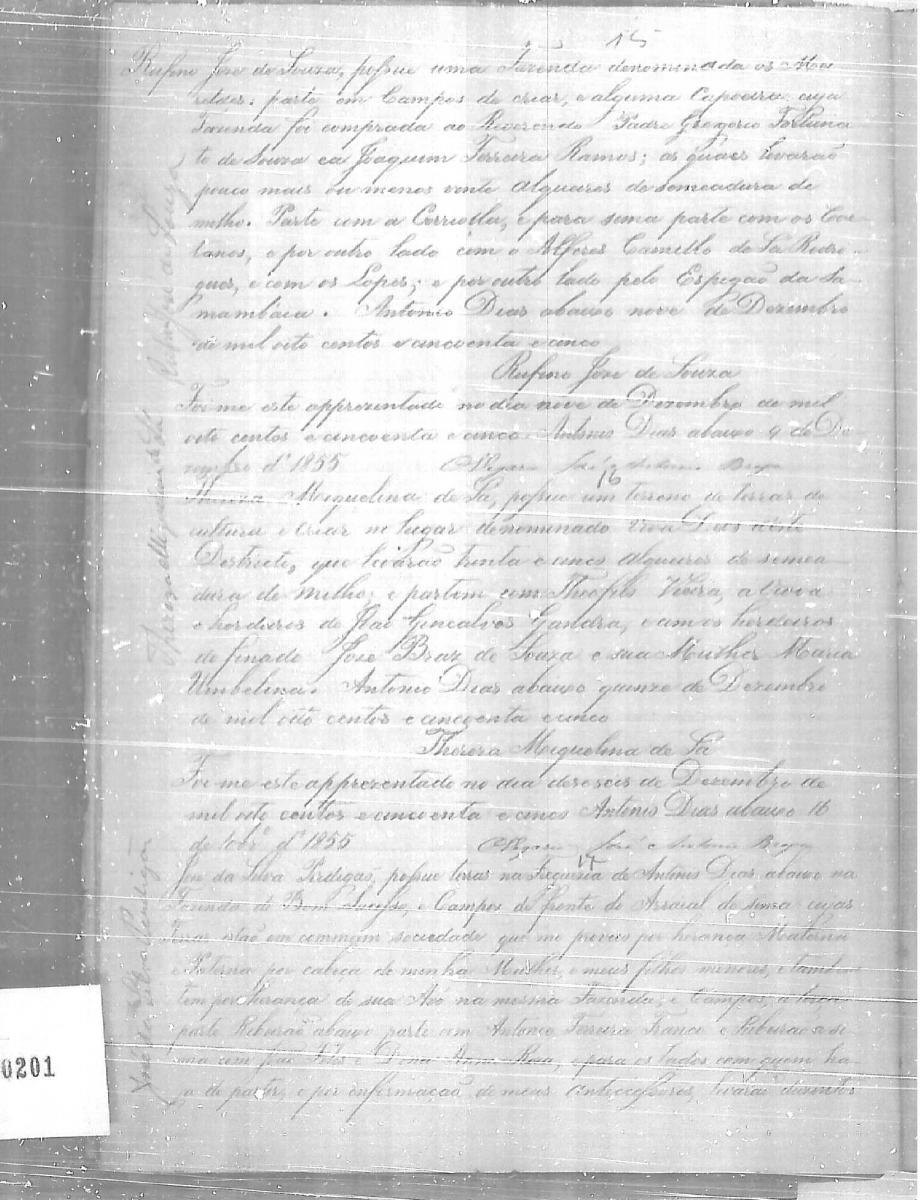 15
Rufino Jose de Souza, possue uma Fazenda denominada os Mo
parte em Campos de criar, e alguma Capoeira, cuja
Fazenda foi comprada ao Reverendo Padre Gregorio Fortuna
to de Souza ea Joaquim Ferreira Ramos; as quaes levarão
pouco mais ou menos vinte alqueires de semeadura de
milho. Parte com a e para sima parte com os Cae
tanos, e por outro lado com o Alferes Camello de Sá Rodri
gues, e com os Lopes; e por outro lado pelo Espigão da Sa
mambáia. Antonio Dias abaixo nove de Dezembro
de mil oito centos e cincoenta e cinco
Rufino Jose de Souza
Foi me este apprezentado no dia nove de Dezembro de mil
oito centos e cincoenta e cinco Antonio Dias abaixo 9 de De
zembro d' 1855 José Antonio Braga
16
Thereza Miquelina de Sá, possue um terreno de terras de
cultura e criar no lugar denominado
Destricto, que levarão trinta e cinco alqueires de semea
dura de milho; e partem com Theofilo Vieira, a viuva
e herdeiros de Gonçalves Gandra, e com os herdeiros
do finado José Braz de Souza e sua Mulher Maria
Umbelina. Antonio Dias abaixo quinze de Dezembro
de mil oito centos e cincoenta e cinco
Thereza Miquelina de Sá
Foi me este apprezentado no dia deseseis de Dezembro de
mil oito centos e cincoenta e cinco Antonio Dias abaixo 16
de 10br.º d' 1855 José Antonio Braga
17
José da Silva Perdigão, possue terras na Freguezia de Antonio Dias abaixo na
Fazenda do Bom Sucesso, e Campos de frente do Arraial de cujas
terras estão em commum sociedade que me proveio por herança Materna
e Paterna por cabeça de minha Mulher, e meus filhos menores, e tambem
tem por herança de sua Avó na mesma Fazenda, e Campos, a terça
parte Ribeirão abaixo parte com Antonio Ferreira Franco e Ribeirão a si
ma com e Dona Anna Rosa, e para os lados com quem ha
ja de partir, e por enformação de meus Antecessores, levará
Rufino Jose de Souza
Thereza Miquelina de Sá
José da Silva Perdigão
0201